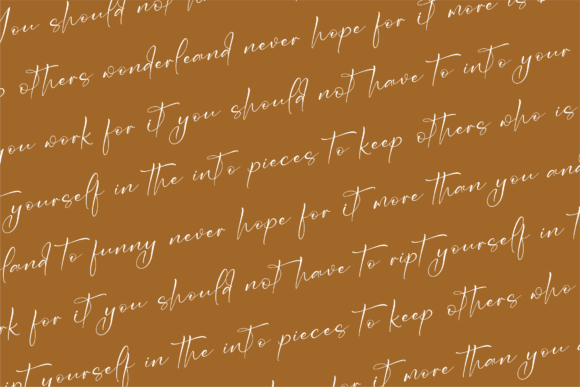 You should not ha
p others wonderleand never hope for it more is
you work for it you should not have to into your
t yourself in the into pieces to keep others who is
land to funny never hope for it more than you and
rk for it you should not have to ript yourself in t
ipt yourself in the into pieces to keep others who
for it more than you a